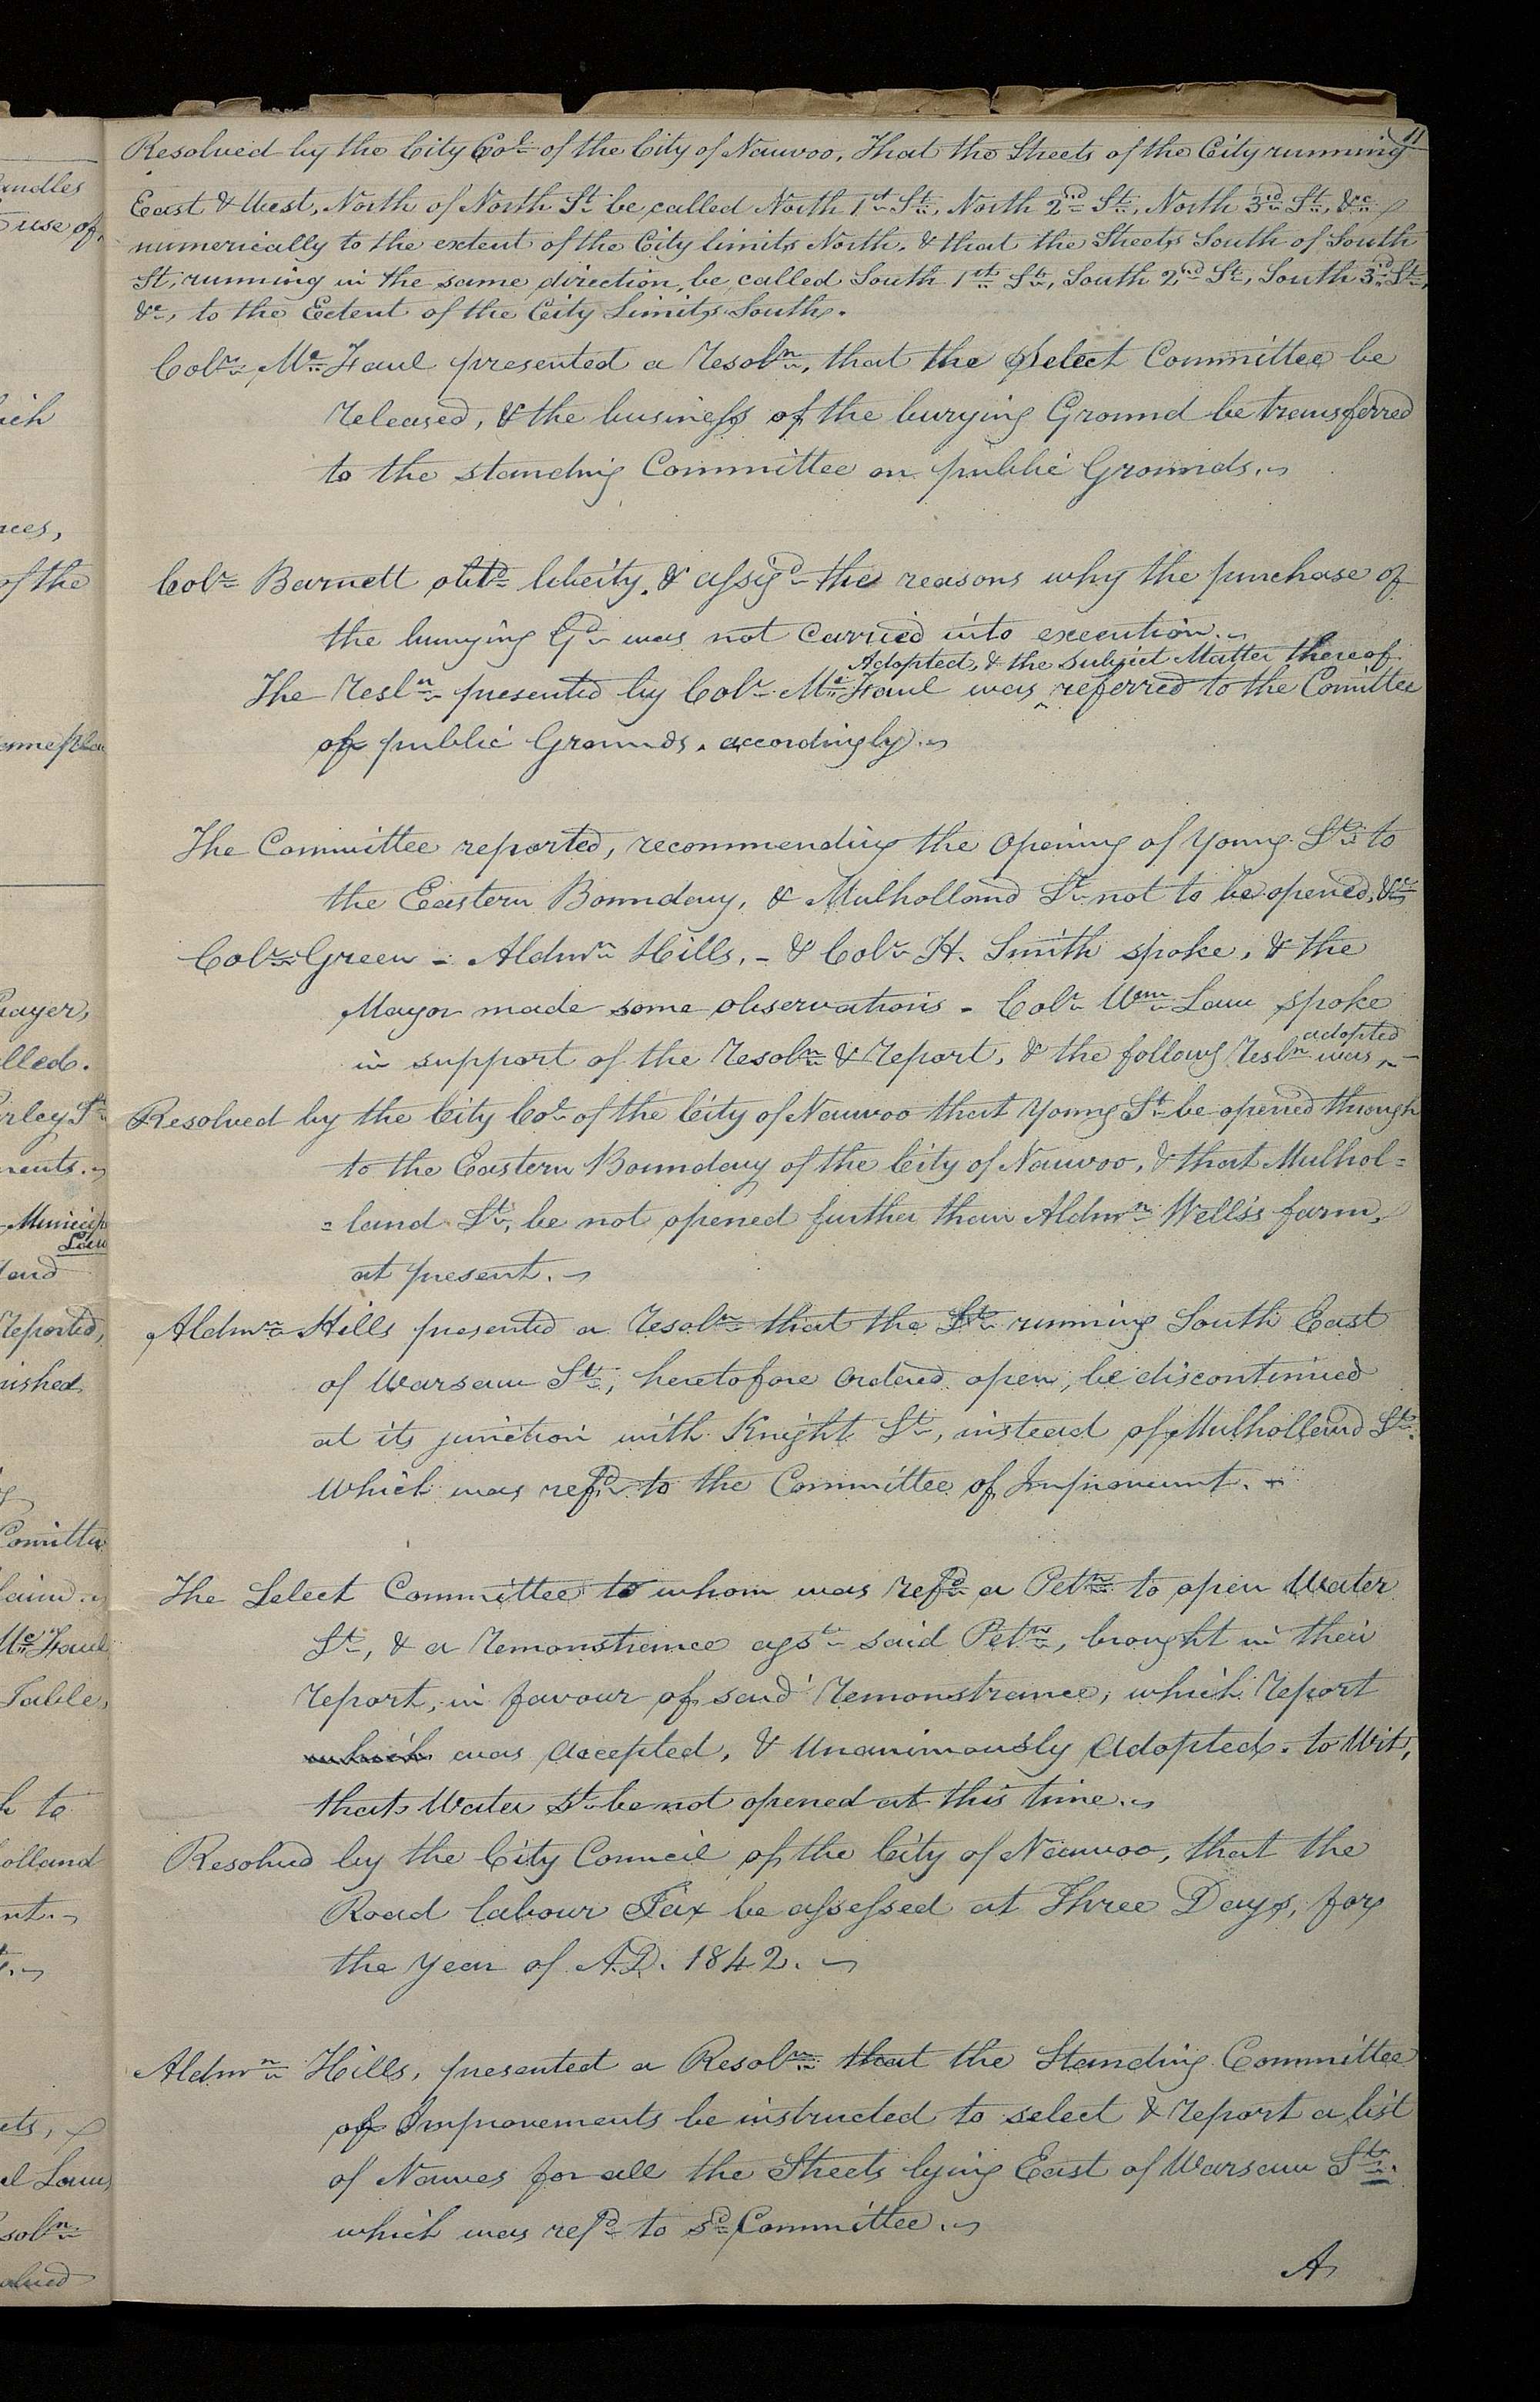 11
Resolved by the City Col. of the City of Nauvoo, That the Streets of the City running
East & West, North of North St. be called North 1st St., North 2nd St., North 3rd St., &c.
numerically to the extent of the City limits North, & that the Streets South of South
St, running in the same direction, be called South 1st St., South 2nd St., South 3rd St.,
&c., to the Extent of the City Limits South.
Colr. Mc.Faul presented a resoln., that the Select Committee be
released, & the business of the burying Ground be transferred
to the standing Committee on public Grounds.
Colr. Barnett obtd. liberty, & assigd. the reasons why the purchase of
the burying Gd. was not carried into execution.
Adopted, & the subject Matter thereof
The resln. presented by Colr. Mc.Faul was ^ referred to the Comittee
of public Grounds, accordingly.
The Committee reported, recommending the opening of Young St. to
the Eastern Boundary, & Mulholland St. not to be opened, &c.
Colr. Green - Aldmn. Hills, - & Colr. H. Smith spoke, & the
Mayor made some observations - Colr. Wm. Law spoke
adopted
in support of the resoln. & report, & the followg resln. was ^ -
Resolved by the City Col. of the City of Nauvoo that Young St. be opened through
to the Eastern Boundary of the City of Nauvoo, & that Mulhol=
=land St., be not opened further than Aldmn. Wells's farm,
at present.
Aldmn. Hills presented a resoln. that the St. running South East
of Warsaw St.; heretofore ordered open, be discontinued
at its junction with Knight St., instead of Mulholland St.
Which was refd. to the Committee of Improvemnt.
The Select Committee to whom was refd. a Petn. to open Water
St., & a remonstrance agst. said Petn., brought in their
report, in favour of said remonstrance, which report
which was accepted, & Unanimously Adopted. to Wit,
that Water St. be not opened at this time.
Resolved by the City Council of the City of Nauvoo, that the
Road labour Tax be assessed at Three Days, for
the Year of A.D. 1842.
Aldmn. Hills, presented a Resoln. that the Standing Committee
of Improvements be instructed to select & report a list
of Names for all the Streets lying East of Warsaw St.
which was refd. to sd. Committee.
A